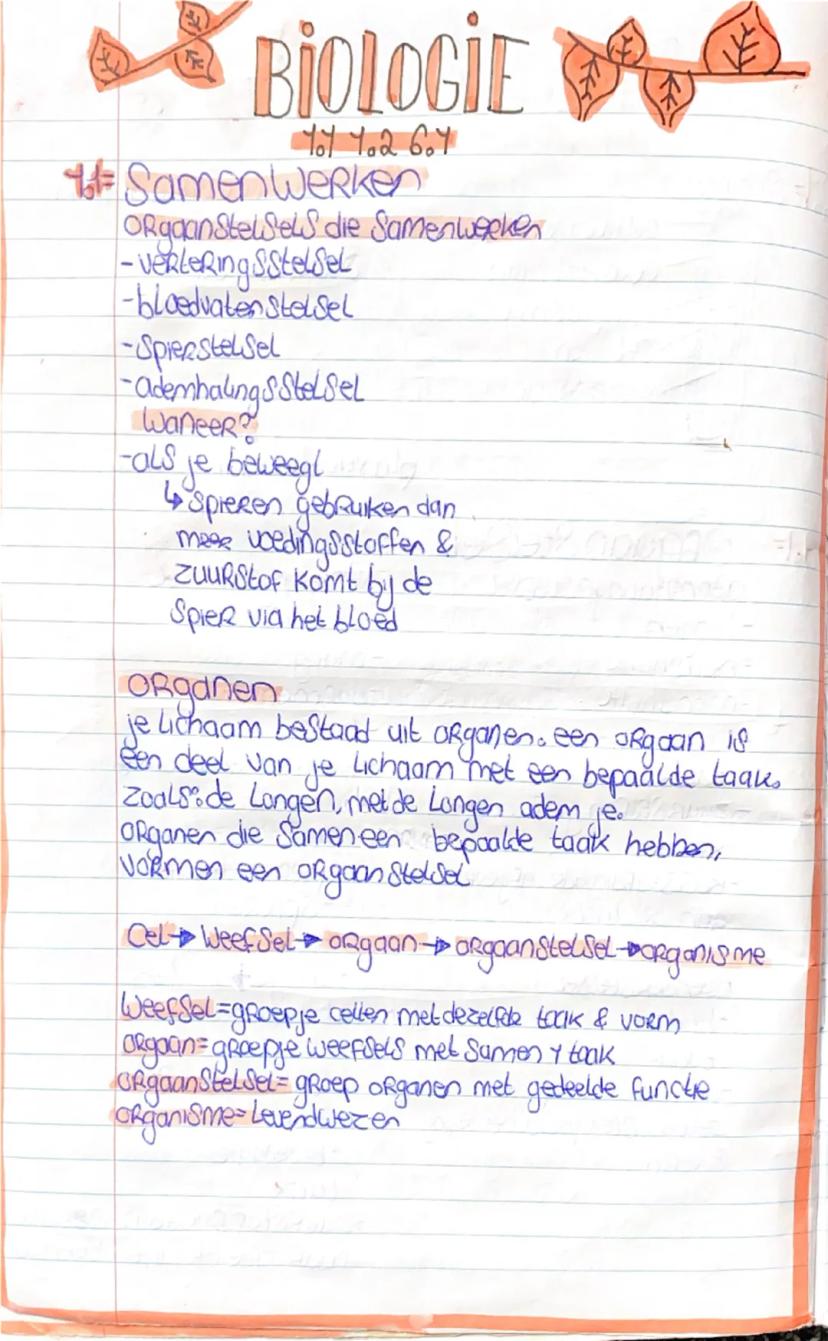 BIOLOGIE
1.1 1.2 6.1
1.1= Samenwerken
Orgaanstelsels die samenwerken
- verteringsstelsel
- bloedvatenstelsel
- Spierstelsel
- ademhalingsstelsel
Waneer?
- als je beweegt
↳ spieren gebruiken dan
meer voedingsstoffen &
zuurstof komt bij de
spier via het bloed
Organen
je lichaam bestaad uit organen. een orgaan is
een deel van je lichaam met een bepaalde taak.
zoals: de longen, met de longen adem je.
Organen die samen een bepaalde taak hebben,
vormen een orgaanstelsel
Cel → Weefsel → orgaan → orgaanstelsel → organisme
Weefsel = groepje cellen met dezelfde taak & vorm
Orgaan = groepje weefsels met samen 1 taak
Orgaanstelsel = groep organen met gedeelde functie
Organisme = Levendwezen